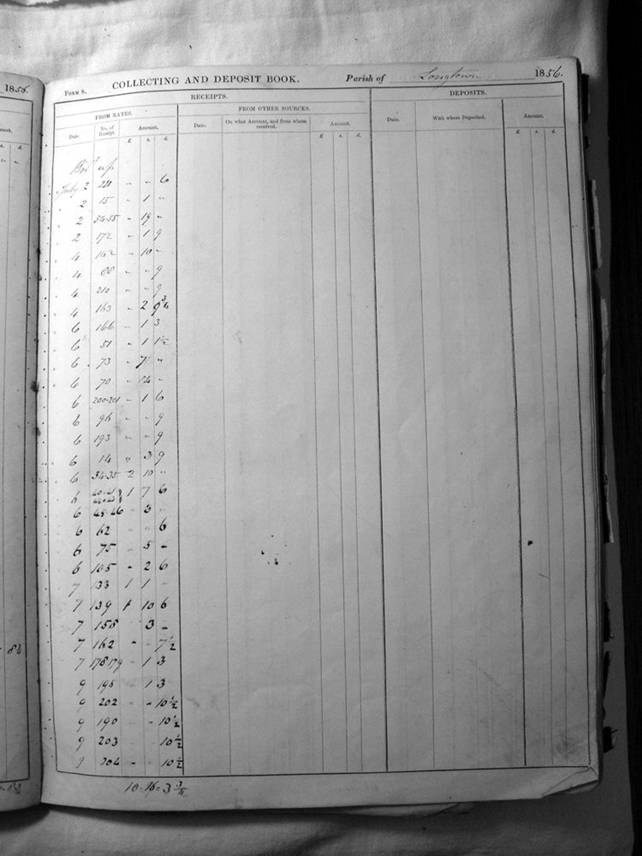 1855.
FORM 8. COLLECTING AND DEPOSIT BOOK. Parish of Longtown 1856.
RECEIPTS. DEPOSITS.
FROM RATES. FROM OTHER SOURCES.
Date. No. of Receipt. Amount. Date. On what Account, and from whom received. Amount. Date. With whom Deposited. Amount.
£ s. d. £ s. d. £ s. d.
2 211 - - 6
2 15 - 1 -
2 54-55 - 19 -
2 172 - 1 9
4 142 - 10 -
4 88 - - 9
4 210 - - 9
4 163 - 2 9 3/4
6 166 - 1 3
6 51 - 1 1½
6 73 - 7 -
6 70 - 14 -
6 200-201 - 1 6
6 96 - - 9
6 193 - - 9
6 14 - 3 9
6 34-35 2 10 -
6 1 7 6
6 45-46 - 3 -
6 62 - 6
6 75 - 5 -
6 105 - 2 6
7 33 1 1 -
7 139 1 10 6
7 155 3 -
7 162 - - 7½
7 178-179 - 1 3
9 195 - 1 3
9 202 - - 10½
9 190 - - 10½
9 203 10½
9 204 - 10½
10-16-3 3/4